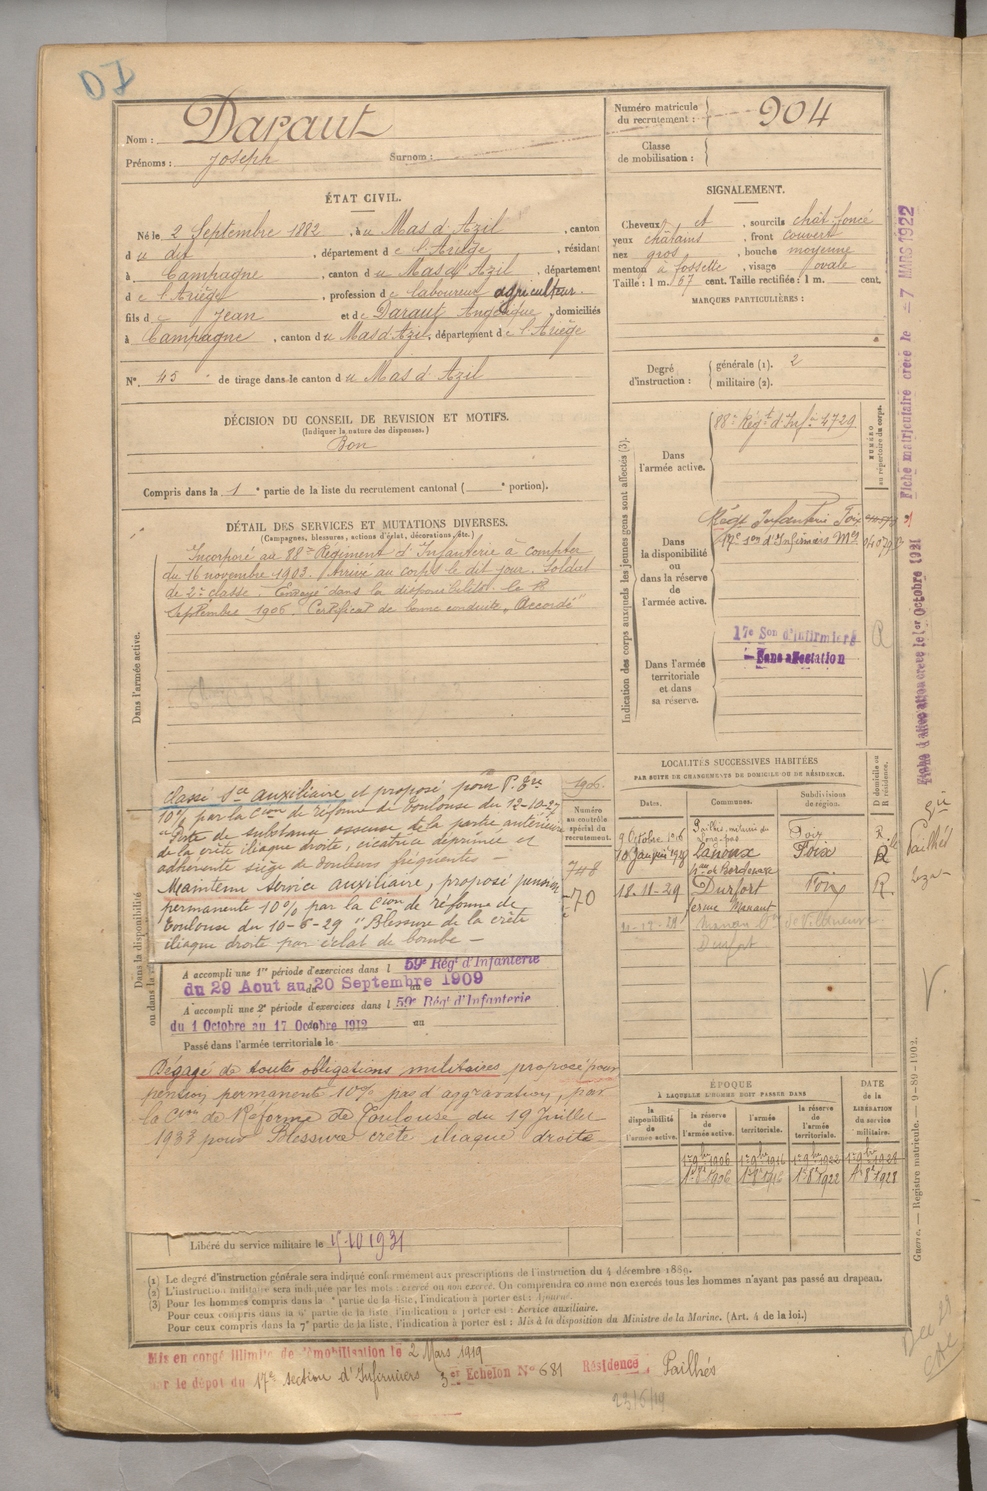 Nom : Daraut
Prénoms : Joseph Surnom :
Numéro matricule du recrutement : 904
Classe de mobilisation :
ÉTAT CIVIL.
Né le 2 Septembre 1882, à u Mas d'Azil, canton
d u dit, département d e l'Ariège, résidant
à Campagne, canton d u Mas d'Azil, département
d e l'Ariège, profession d e laboureur agriculteur.
fils d e Jean et d e Daraut Angélique, domiciliés
à Campagne, canton d u Mas d'Azil, département d e l'Ariège
N° 45 de tirage dans le canton d u Mas d'Azil
SIGNALEMENT.
Cheveux et, sourcils chât. foncé
yeux châtains, front couvert
nez gros, bouche moyenne
menton à fossette, visage ovale
Taille : 1 m. 67 cent. Taille rectifiée : 1 m. cent.
MARQUES PARTICULIÈRES :
Degré d'instruction : générale (1). 2
militaire (2).
DÉCISION DU CONSEIL DE REVISION ET MOTIFS.
(Indiquer la nature des dispenses.)
Bon
Compris dans la 1e partie de la liste du recrutement cantonal ( e portion).
DÉTAIL DES SERVICES ET MUTATIONS DIVERSES.
(Campagnes, blessures, actions d'éclat, décorations, etc.)
Dans l'armée active.
Incorporé au 88e Régiment d'Infanterie à compter
du 16 novembre 1903. Arrivé au corps le dit jour. Soldat
de 2e classe. Envoyé dans la disponibilité le
Septembre 1906 Certificat de bonne conduite "Accordé"
Indication des corps auxquels les jeunes gens sont affectés (3).
NUMÉRO au répertoire du corps.
Dans l'armée active.
88e Régt d'Infie 4729
Dans la disponibilité ou dans la réserve de l'armée active.
Régt Infanterie Foix
17e son d'Infirmiers Mres
Dans l'armée territoriale et dans sa réserve.
17e Son d'Infirmiers
Sans affectation
Classé Sce auxiliaire et proposé pour P. Tre
10% par la Cion de réforme de Toulouse du 12-10-27
"Perte de substance osseuse de la partie antérieure
de la crête iliaque droite, cicatrice déprimée et
adhérente siège de douleurs fréquentes –
Maintenu Service auxiliaire, proposé pension
permanente 10% par la Cion de réforme de
Toulouse du 10-6-29 "Blessure de la crête
iliaque droite par éclat de bombe –
1906
Numéro au contrôle spécial du recrutement.
748
70
Dans la disponibilité
ou dans la
A accompli une 1re période d'exercices dans l 59e Régt d'Infanterie
du 29 Aout au 20 Septembre 1909
A accompli une 2e période d'exercices dans l 59e Régt d'Infanterie
du 1 Octobre au 17 Octobre 1912 au
Passé dans l'armée territoriale le
Dégagé de toutes obligations militaires proposé pour
pension permanente 10% pas d'aggravation, par
la Cion de Réforme de Toulouse du 19 Juillet
1933 pour Blessure crête iliaque droite
Libéré du service militaire le 15-10 1931
LOCALITÉS SUCCESSIVES HABITÉES
PAR SUITE DE CHANGEMENTS DE DOMICILE OU DE RÉSIDENCE.
Dates. Communes. Subdivisions de région. D domicile ou R résidence.
Pailhès
Foix R
Lanoux Foix R
18-11-29 Durfort Foix R
ferme Manaut
Durfort
ÉPOQUE
À LAQUELLE L'HOMME DOIT PASSER DANS
DATE de la LIBÉRATION du service militaire.
la disponibilité de l'armée active. la réserve de l'armée active. l'armée territoriale. la réserve de l'armée territoriale.
1er 9bre 1906 1er 9bre 1916 1er 9bre 1922
1er 8bre 1906 1er 8bre 1916 1er 8bre 1922 1er 8bre 1928
(1) Le degré d'instruction générale sera indiqué conformément aux prescriptions de l'instruction du 4 décembre 1889.
(2) L'instruction militaire sera indiquée par les mots : exercé ou non exercé. On comprendra comme non exercés tous les hommes n'ayant pas passé au drapeau.
(3) Pour les hommes compris dans la partie de la liste, l'indication à porter est : Ajourné.
Pour ceux compris dans la partie de la liste, l'indication à porter est : Service auxiliaire.
Pour ceux compris dans la 7e partie de la liste, l'indication à porter est : Mis à la disposition du Ministre de la Marine. (Art. 4 de la loi.)
Mis en congé illimité de démobilisation le 2 Mars 1919
par le dépôt du 17e section d'Infirmiers 3er Echelon N° 681 Résidence Pailhès
23/6/19
Fiche matriculaire créée le 7 MARS 1922
Fiche d'affectation créée le 1er Octobre 1921
Pailhès
Guerre. — Registre matricule. — 9-89-1902.